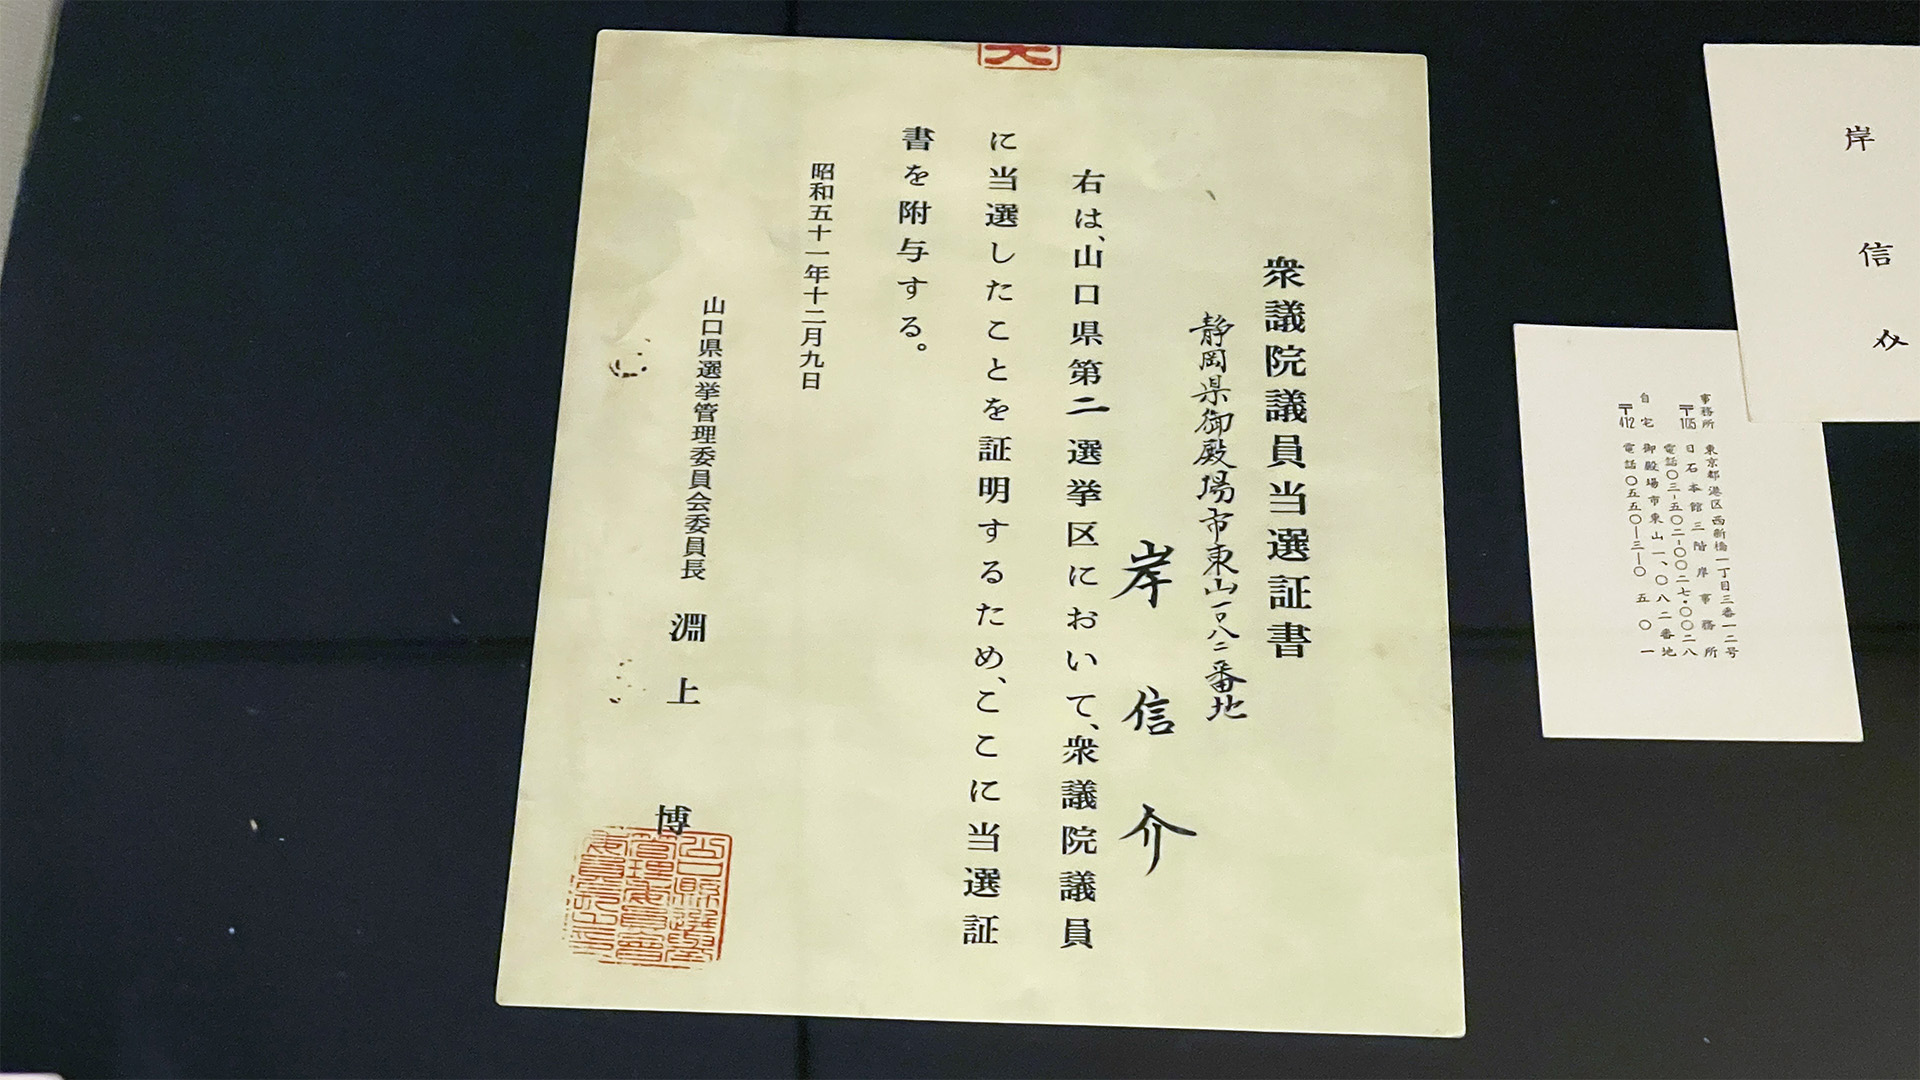 衆議院議員当選証書
静岡県御殿場市東山一〇八二番地
岸信介
右は、山口県第二選挙区において、衆議院議員
に当選したことを証明するため、ここに当選証
書を附与する。
昭和五十一年十二月九日
山口県選挙管理委員会委員長 淵上 博
岸信介
事務所 東京都港区西新橋一丁目三番一二号
〒105 日石本館三階岸事務所
電話〇三-五〇二-〇〇二七・〇〇二八
自宅 御殿場市東山一、〇八二番地
〒412 電話〇五五〇-三-〇五〇一